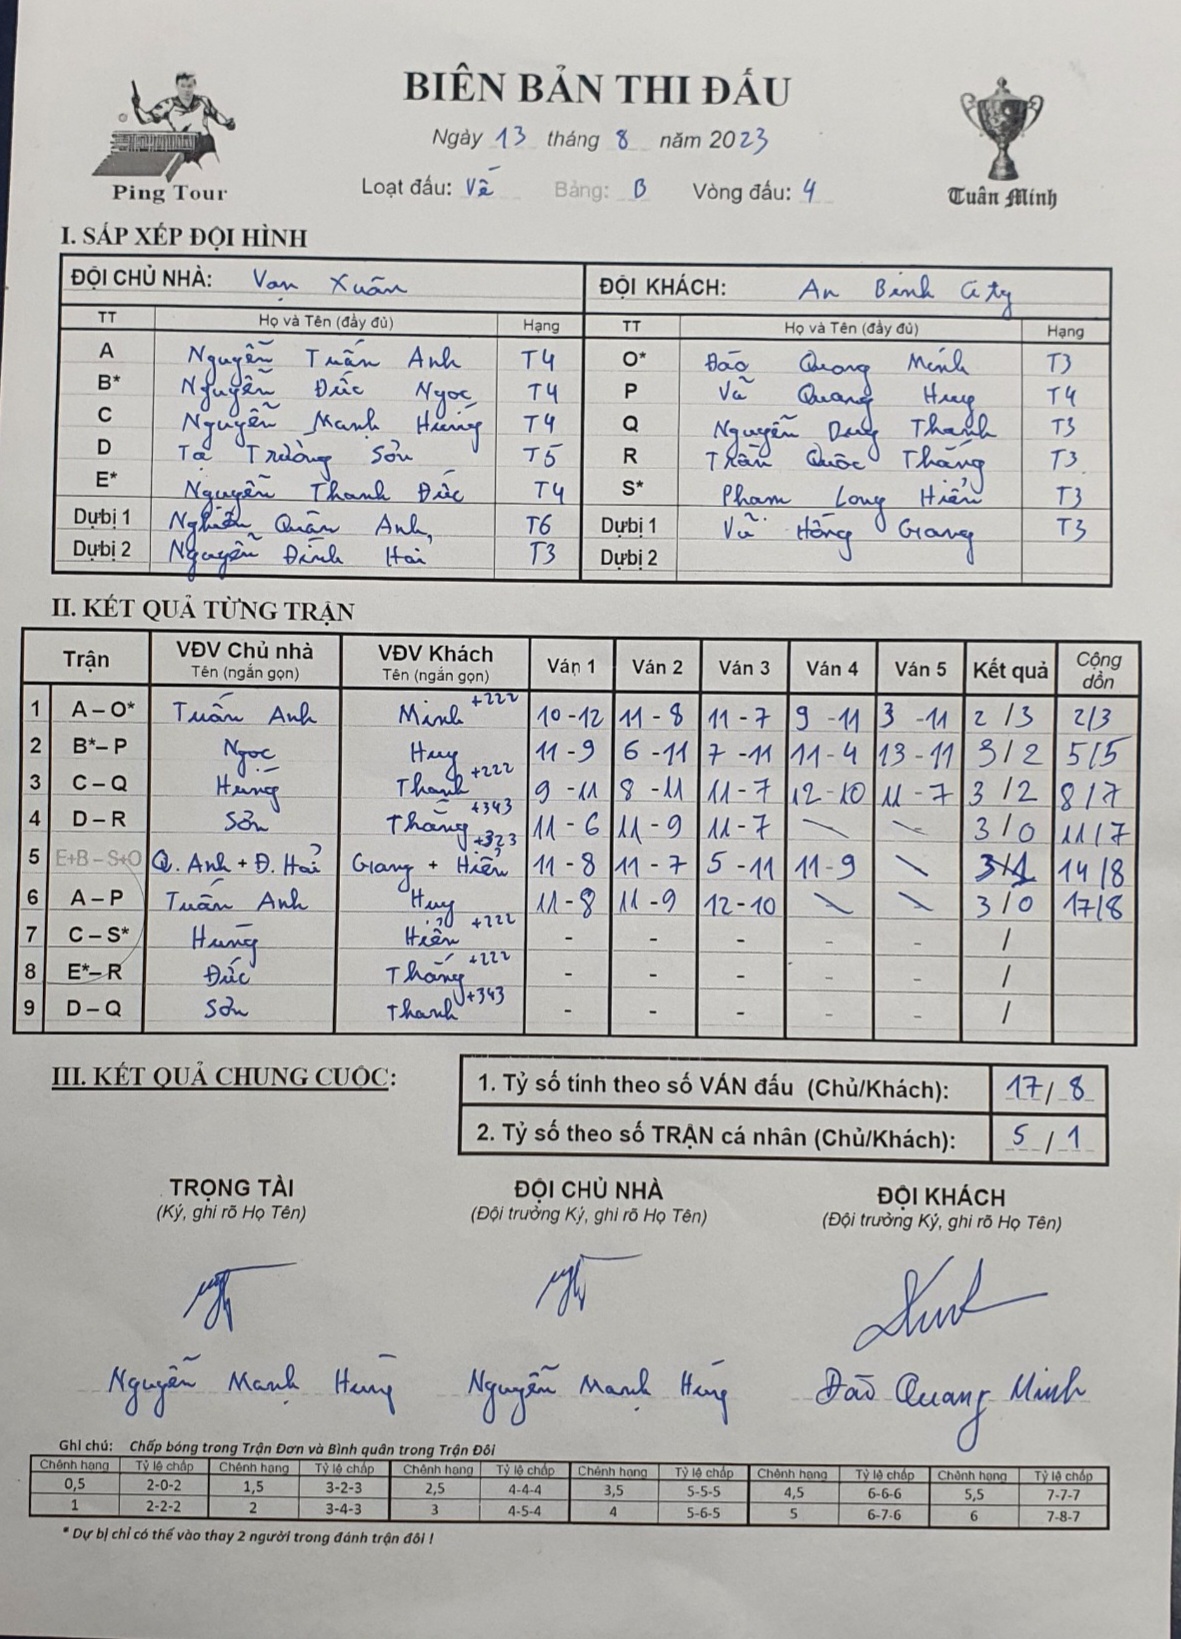 BIÊN BẢN THI ĐẤU
Ngày 13 tháng 8 năm 2023
Loạt đấu: Về Bảng: B Vòng đấu: 4
Ping Tour
Tuân Mính
I. SẮP XẾP ĐỘI HÌNH
ĐỘI CHỦ NHÀ: Vạn Xuân ĐỘI KHÁCH: An Bình City
TT Họ và Tên (đầy đủ) Hạng TT Họ và Tên (đầy đủ) Hạng
A Nguyễn Tuấn Anh T4 O* Đào Quang Minh T3
B* Nguyễn Đức Ngọc T4 P Vũ Quang Huy T4
C Nguyễn Mạnh Hùng T4 Q Nguyễn Duy Thanh T3
D Tạ Trường Sơn T5 R Trần Quốc Thắng T3
E* Nguyễn Thanh Đức T4 S* Phạm Long Hiển T3
Dự bị 1 Quân Anh T6 Dự bị 1 Vũ Hồng Giang T3
Dự bị 2 Nguyễn Đình Hải T3 Dự bị 2
II. KẾT QUẢ TỪNG TRẬN
Trận VĐV Chủ nhà Tên (ngắn gọn) VĐV Khách Tên (ngắn gọn) Ván 1 Ván 2 Ván 3 Ván 4 Ván 5 Kết quả Cộng dồn
1 A – O* Tuấn Anh Minh +222 10-12 11-8 11-7 9-11 3-11 2/3 2/3
2 B*– P Ngọc Huy 11-9 6-11 7-11 11-4 13-11 3/2 5/5
3 C – Q Hùng Thanh +222 9-11 8-11 11-7 12-10 11-7 3/2 8/7
4 D – R Sơn Thắng +343 11-6 11-9 11-7 \ \ 3/0 11/7
5 E+B – S+O Q. Anh + Đ. Hải Giang + Hiển +323 11-8 11-7 5-11 11-9 \ 3/1 14/8
6 A – P Tuấn Anh Huy 11-8 11-9 12-10 \ \ 3/0 17/8
7 C – S* Hùng Hiển +222 - - - - - /
8 E*– R Đức Thắng +222 - - - - - /
9 D – Q Sơn Thanh +343 - - - - - /
III. KẾT QUẢ CHUNG CUỘC:
1. Tỷ số tính theo số VÁN đấu (Chủ/Khách): 17/8
2. Tỷ số theo số TRẬN cá nhân (Chủ/Khách): 5/1
TRỌNG TÀI ĐỘI CHỦ NHÀ ĐỘI KHÁCH
(Ký, ghi rõ Họ Tên) (Đội trưởng Ký, ghi rõ Họ Tên) (Đội trưởng Ký, ghi rõ Họ Tên)
Nguyễn Mạnh Hùng Nguyễn Mạnh Hùng Đào Quang Minh
Ghi chú: Chấp bóng trong Trận Đơn và Bình quân trong Trận Đôi
Chênh hạng Tỷ lệ chấp Chênh hạng Tỷ lệ chấp Chênh hạng Tỷ lệ chấp Chênh hạng Tỷ lệ chấp Chênh hạng Tỷ lệ chấp Chênh hạng Tỷ lệ chấp
0,5 2-0-2 1,5 3-2-3 2,5 4-4-4 3,5 5-5-5 4,5 6-6-6 5,5 7-7-7
1 2-2-2 2 3-4-3 3 4-5-4 4 5-6-5 5 6-7-6 6 7-8-7
* Dự bị chỉ có thể vào thay 2 người trong đánh trận đôi !